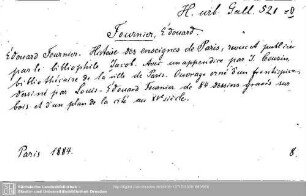 H. urb. Gall. 521
Fournier, Edouard.
Edouard Fournier. Histoire des enseignes de Paris, revue et publiée
par le bibliophile Jacob. Avec un appendice par J. Cousin
bibliothécaire de la ville de Paris. Ouvrage orné d'un frontispice
dessiné par Louis-Edouard Fournier de 84 dessins gravés sur
bois et d'un plan de la cité au XVe siècle.
Paris 1884. 8.